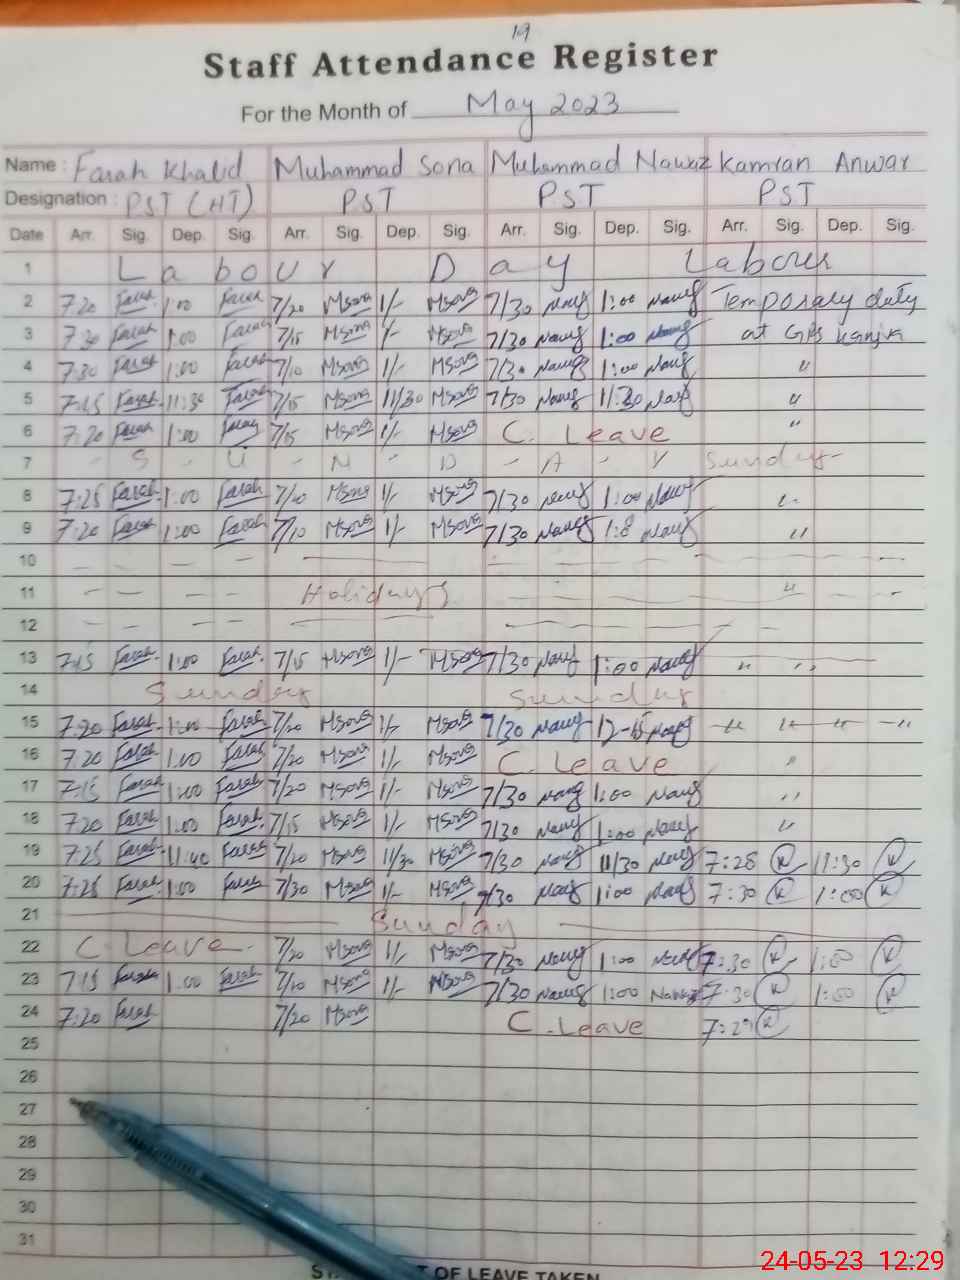 19
Staff Attendance Register
For the Month of May 2023
Name : Farah Khalid Muhammad Sona Muhammad Nawaz Kamran Anwar
Designation : PST (HT) PST PST PST
Date Arr. Sig. Dep. Sig. Arr. Sig. Dep. Sig. Arr. Sig. Dep. Sig. Arr. Sig. Dep. Sig.
1 Labour Day Labour
2 7:20 Farah 1:00 Farah 7/20 MSona 1/- MSona 7/30 Nawz 1:00 Nawz Temporary duty
3 7:30 Farah 1:00 Farah 7/15 MSona 1/- MSona 7/30 Nawz 1:00 Nawz at GPS
4 7:30 Farah 1:00 Farah 7/10 MSona 1/- MSona 7/30 Nawz 1:00 Nawz "
5 7:15 Farah 11:30 Farah 7/15 MSona 11/30 MSona 7/30 Nawz 11:30 Nawz "
6 7:20 Farah 1:00 Farah 7/15 MSona 1/- MSona C. Leave "
7 - S - U - N - D - A - Y Sunday
8 7:25 Farah 1:00 Farah 7/10 MSona 1/- MSona 7/30 Nawz 1:00 Nawz "
9 7:20 Farah 1:00 Farah 7/10 MSona 1/- MSona 7/30 Nawz Nawz "
10
11 Holidays "
12
13 7:15 Farah 1:00 Farah 7/15 MSona 1/- MSona 7/30 Nawz 1:00 Nawz " "
14 Sunday Sunday
15 7:20 Farah 1:00 Farah 7/20 MSona 1/- MSona 7/30 Nawz 12-15 Nawz " " " "
16 7:20 Farah 1:00 Farah 7/20 MSona 1/- MSona C. Leave "
17 7:15 Farah 1:00 Farah 7/20 MSona 1/- MSona 7/30 Nawz 1:00 Nawz "
18 7:20 Farah 1:00 Farah 7/15 MSona 1/- MSona 7/30 Nawz 1:00 Nawz "
19 7:25 Farah 11:40 Farah 7/20 MSona 11/30 MSona 7/30 Nawz 11/30 Nawz 7:28 K 11:30 K
20 7:25 Farah 1:00 Farah 7/30 MSona 1/- MSona 7/30 Nawz 1:00 Nawz 7:30 K 1:00 K
21 Sunday
22 C. Leave 7/20 MSona 1/- MSona 7/30 Nawz 1:00 Nawz 7:30 K 1:00 K
23 7:15 Farah 1:00 Farah 7/10 MSona 1/- MSona 7/30 Nawz 1:00 Nawaz 7:30 K 1:00 K
24 7:20 Farah 7/20 MSona C. Leave 7:29 K
25
26
27
28
29
30
31
OF LEAVE TAKEN
24-05-23 12:29